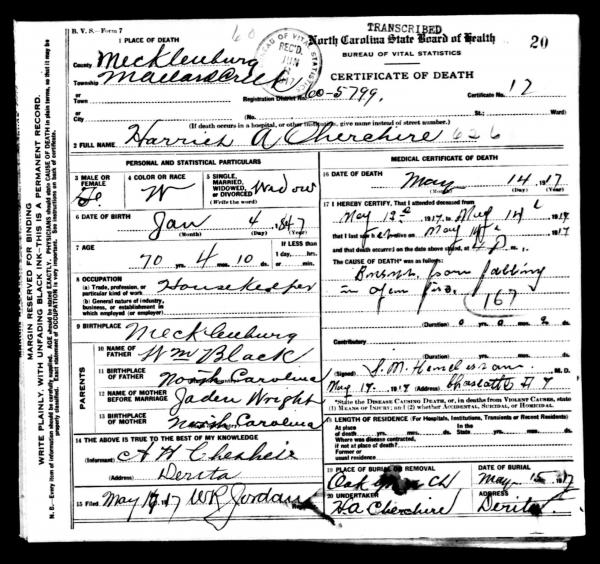 B. V. S.—Form 7
60
TRANSCRIBED
North Carolina State Board of Health
BUREAU OF VITAL STATISTICS
20
BUREAU OF VITAL STATISTICS
REC'D.
JUN
1 PLACE OF DEATH
County Mecklenburg
Township Mallard Creek
CERTIFICATE OF DEATH
Registration District No. 60-5799 Certificate No. 17
or
Town
or
City (No. St.; Ward)
(If death occurs in a hospital, or other institution, give name instead of street number.)
2 FULL NAME Harriet A Cherchire 626
PERSONAL AND STATISTICAL PARTICULARS
3 MALE OR FEMALE Fe
4 COLOR OR RACE W
5 SINGLE, MARRIED, WIDOWED, OR DIVORCED (Write the word) Widow
6 DATE OF BIRTH Jan 4 1847
(Month) (Day) (Year)
7 AGE 70 yrs. 4 mos. 10 ds.
If LESS than 1 day, hrs. or min.
8 OCCUPATION
(a) Trade, profession, or particular kind of work Housekeeper
(b) General nature of industry, business, or establishment in which employed (or employer)
9 BIRTHPLACE Mecklenburg
PARENTS
10 NAME OF FATHER Wm Black
11 BIRTHPLACE OF FATHER North Carolina
12 NAME OF MOTHER BEFORE MARRIAGE Jaden Wright
13 BIRTHPLACE OF MOTHER North Carolina
14 THE ABOVE IS TRUE TO THE BEST OF MY KNOWLEDGE
(Informant) A H Chesheir
Derita
15 Filed May 17 W R Jordan
MEDICAL CERTIFICATE OF DEATH
16 DATE OF DEATH May 14 1917
(Month) (Day) (Year)
17 I HEREBY CERTIFY, That I attended deceased from
May 12 1917 to May 14 1917
that I last saw alive on May 14
and that death occurred on the date above stated, at
The CAUSE OF DEATH* was as follows:
Burns from falling
in open fire.
167
(Duration) 0 yrs. 0 mos. 2 ds.
(Duration)
(Signed) S. M. Henderson M. D.
May 17. 1917 (Address)
*State the DISEASE CAUSING DEATH, or, in deaths from VIOLENT CAUSES, state
(1) MEANS OF INJURY; and (2) whether ACCIDENTAL, SUICIDAL, or HOMICIDAL.
18 LENGTH OF RESIDENCE (For Hospitals, Institutions, Transients or Recent Residents)
At place of death yrs. mos. ds. In the State yrs. mos. ds.
Where was disease contracted, if not at place of death?
Former or usual residence
19 PLACE OF BURIAL OR REMOVAL
DATE OF BURIAL
Oak Ch May 15 1917
20 UNDERTAKER
ADDRESS
H A Cherchire Derita
MARGIN RESERVED FOR BINDING
WRITE PLAINLY, WITH UNFADING BLACK INK—THIS IS A PERMANENT RECORD.
N. B. Every item of information should be carefully supplied. AGE should be stated EXACTLY. PHYSICIANS should state CAUSE OF DEATH in plain terms, so that it may be
properly classified. Exact statement of OCCUPATION is very important. See instructions on back of certificate.